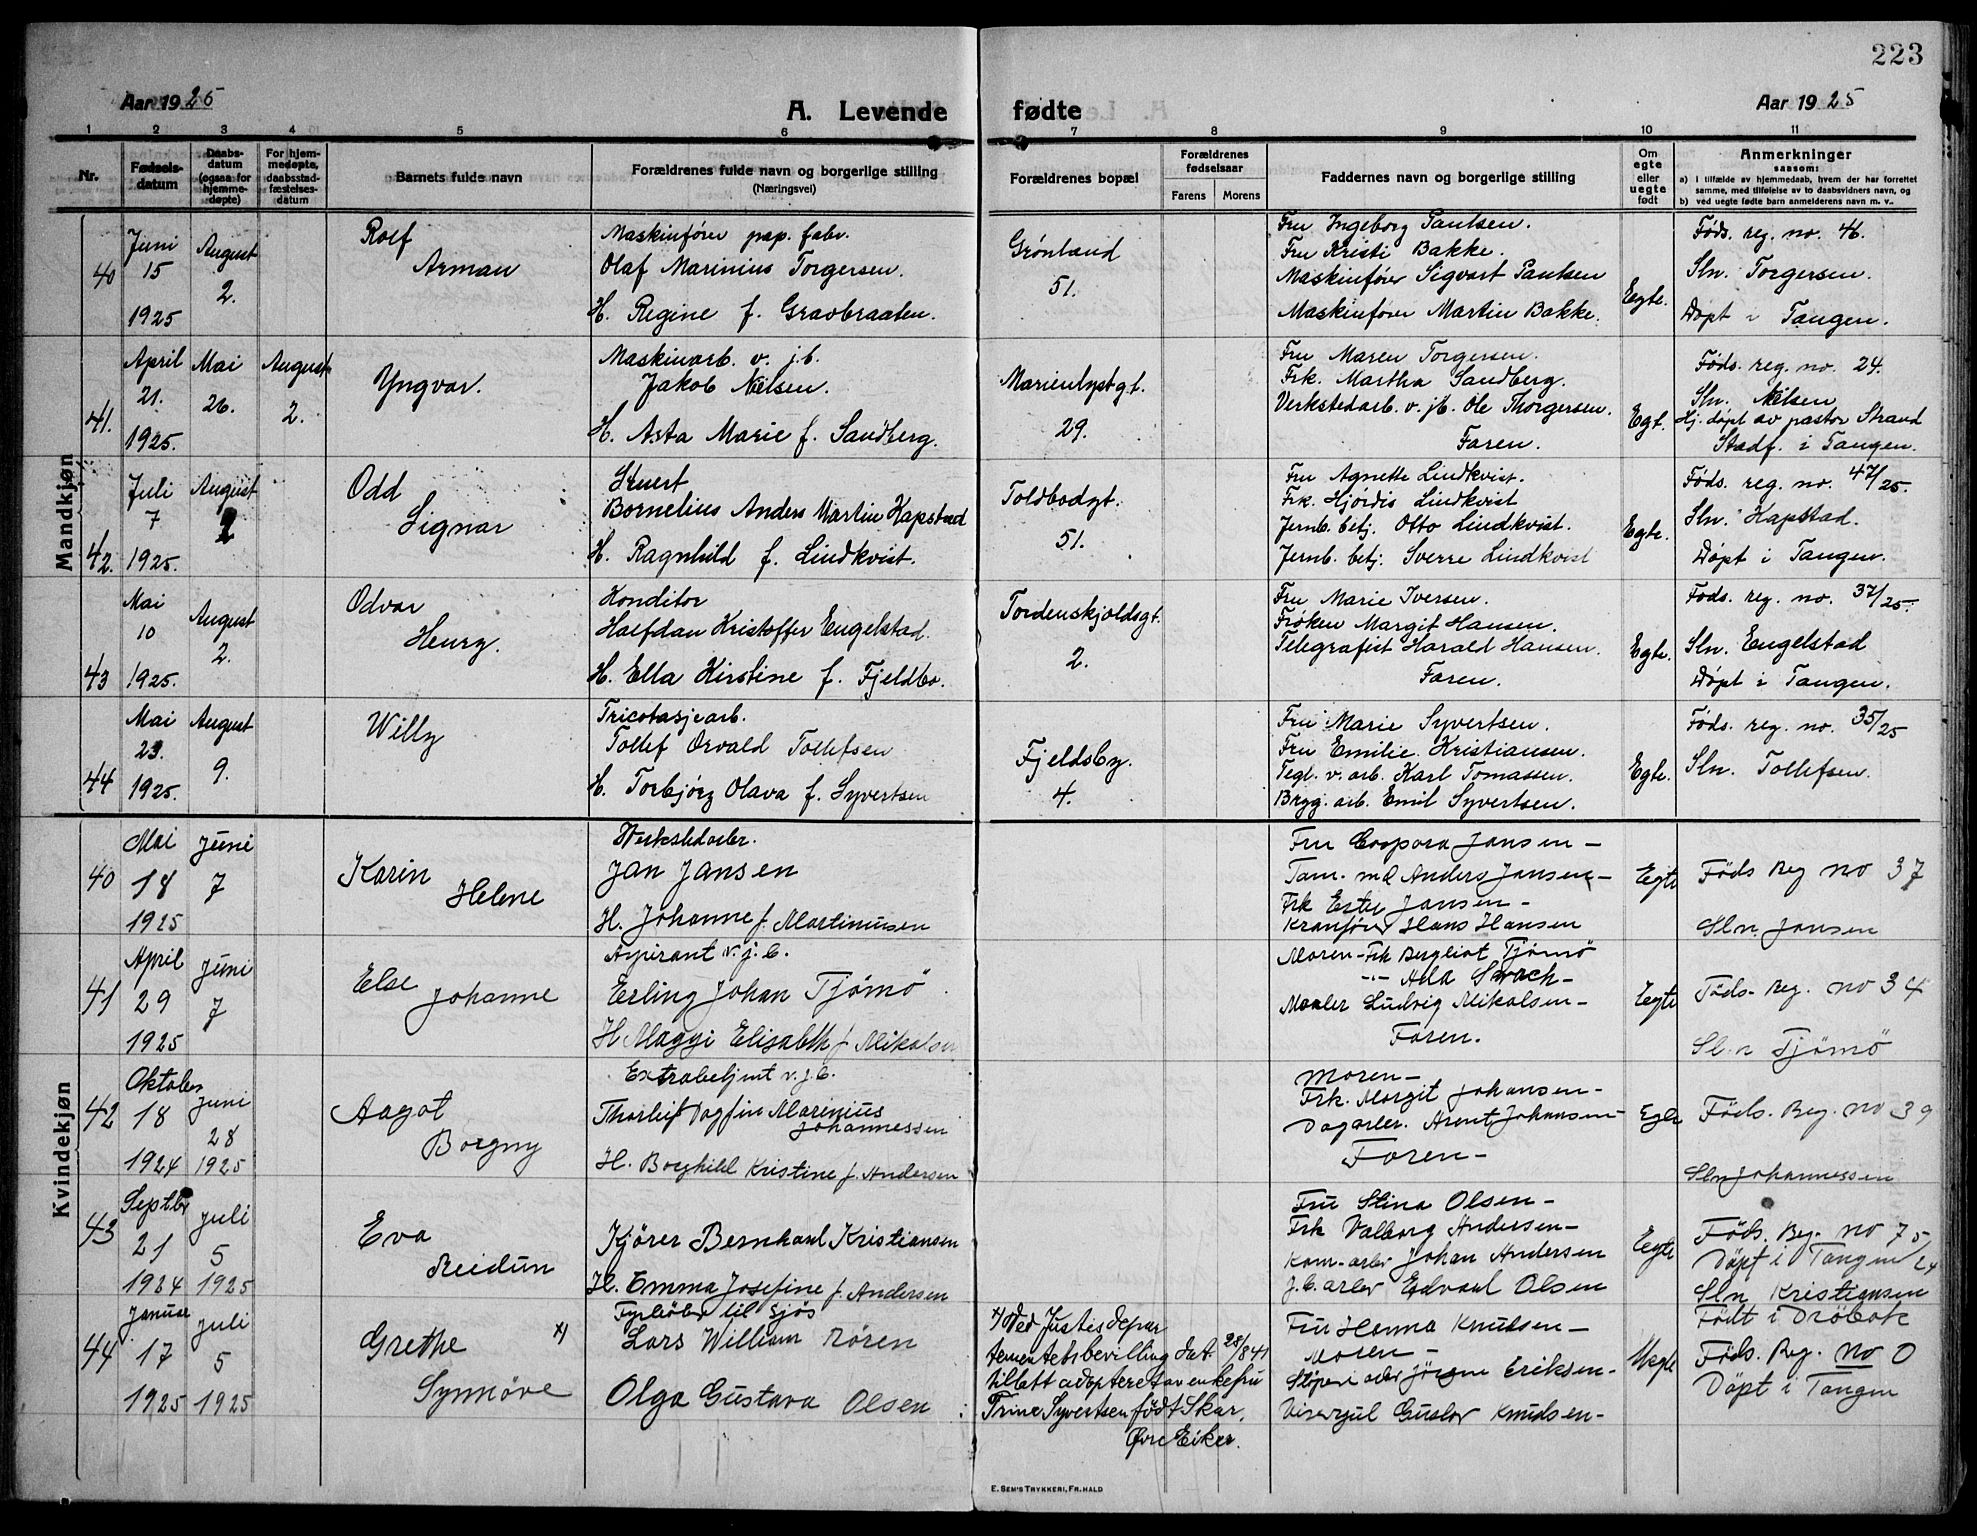 223
Aar 1925
A. Levende fødte
Aar 1925
1 2 3 4 5 6 7 8 9 10 11
Nr.
Fødsels-
datum
Daabs-
datum
(ogsaa for
hjemme-
døpte)
For hjem-
medøpte,
daabsstad-
fæstelses-
datum
Barnets fulde navn
Forældrenes fulde navn og borgerlige stilling
(Næringsvei)
Forældrenes bopæl
Forældrenes
fødselsaar
Farens Morens
Faddernes navn og borgerlige stilling
Om
egte
eller
uegte
født
Anmerkninger
saasom:
a) i tilfælde av hjemmedaab, hvem der har forrettet
samme, med tilføielse av to daabsvidners navn, og
b) ved uegte fødte barn anmelderens navn m. v.
Mandkjøn
40
Juni
15
1925
August
2.
Rolf
Arman
Maskinfører pap. fabr.
Olaf Marinius Torgersen.
H. Regine f. Gravbraaten.
Grønland
51.
Fru Ingeborg Paulsen.
Fru Kristi Bakke.
Maskinfører Sigvart Paulsen
Maskinfører Martin Bakke.
Egte.
Føds. reg. no. 46.
Sln. Torgersen.
Døpt i Tangen.
41.
April
21.
1925.
Mai
26.
August
2.
Yngvar.
Maskinarb. v. j.b.
Jakob Nilsen.
H. Asta Marie f. Sandberg.
Marienlystgt.
29.
Fru Maren Torgersen.
Frk. Martha Sandberg.
Verkstedarb. v. jb. Ole Thorgersen.
Faren.
Egt.
Føds. reg. no. 24.
Sln. Nilsen
Hj. døpt av pastor Strand
Stadf. i Tangen.
42.
Juli
7
1925.
August
2
Odd
Signar
Bornelius Anders Martin Kapstad
H. Ragnhild f. Lindkvist.
Toldbodgt.
51.
Fru Agnette Lindkvist.
Frk. Hjørdis Lindkvist
Jernb. betj. Otto Lindkvist.
Jernb. betj. Sverre Lindkvist
Egte.
Føds. reg. no. 47/25.
Sln. Kapstad.
Døpt i Tangen.
43
Mai
10
1925.
August
2.
Odvar
Henry.
Konditor
Halfdan Kristoffer Engelstad.
H. Ella Kirstine f. Fjeldbo.
Tordenskjoldsgt.
2.
Fru Marie Iversen.
Frøken Margit Hansen.
Telegrafist Harald Hansen.
Faren.
Egte.
Føds. reg. no. 37/25.
Sln. Engelstad
Døpt i Tangen.
44
Mai
23.
1925.
August
9.
Willy
Tricotasjearb.
Tollef Osvald Tollefsen
H. Torbjørg Olava f. Syvertsen
Fjeldsby.
4.
Fru Marie Syvertsen.
Fru Emilie Kristiansen.
Tegl. v. arb. Karl Tomassen.
Bryg. arb. Emil Syvertsen.
Egte.
Føds. reg. no. 35/25
Sln. Tollefsen.
Kvindekjøn
40
Mai
18
1925
Juni
7
Karin
Helene
Verkstedarb.
Jan Jansen
H. Johanne f. Martinusen
Fru Jansen –
Anders Jansen –
Frk Ester Jansen –
Kranfører Hans Hansen
Egte
Føds Reg no 37
Sln. Jansen
41
April
29
1925
Juni
7
Else
Johanne
Aspirant v. j. b.
Erling Johan Tjømø
H Maggi Elisabeth f Mikalsen
Moren – Frk Bergliot Tjømø
–"– Ada –
Maaler Ludvig Mikalsen –
Faren.
Egte
Føds. Reg. no 34
Sl.n Tjømø
42
Oktober
18
1924
Juni
28
1925
Aagot
Borgny
Extrabetjent v. j. b.
Thorleif Dagfin Marinius
Johannessen
H. Borghild Kristine f. Andersen
Moren –
Frk. Margit Johansen –
Dagarb. Arent Johansen –
Faren –
Egte
Føds. Reg. no 39
Sln Johannessen
43
Septbr
21
1924
Juli
5
1925
Eva
Reidun
Kjører Bernhard Kristiansen
H. Emma Josefine f. Andersen
Fru Stina Olsen –
Frk Valborg Andersen –
Kom. arb Johan Andersen
J. b. arb Edvard Olsen
Egte
Føds. Reg. no 75/24
Døpt i Tangen
Sln Kristiansen
44
Januar
17
1925
Juli
5
1925
Grethe x)
Synnøve
Fyrbøter til sjøs
Lars William Røren
Olga Gustava Olsen
x) Ved Justisdepar
tementets bevilling dat. 28/8 41
tillatt adoptert av enkefru
Trine Syvertsen født Skar,
Øvre Eiker.
Fru Hanna Knudsen –
Moren –
Jørgen Eriksen –
Gustav Knudsen –
Uegte
Født i Drøbak
Føds. Reg. no 0
Døpt i Tangen
E. SEM'S TRYKKERI, FR.HALD